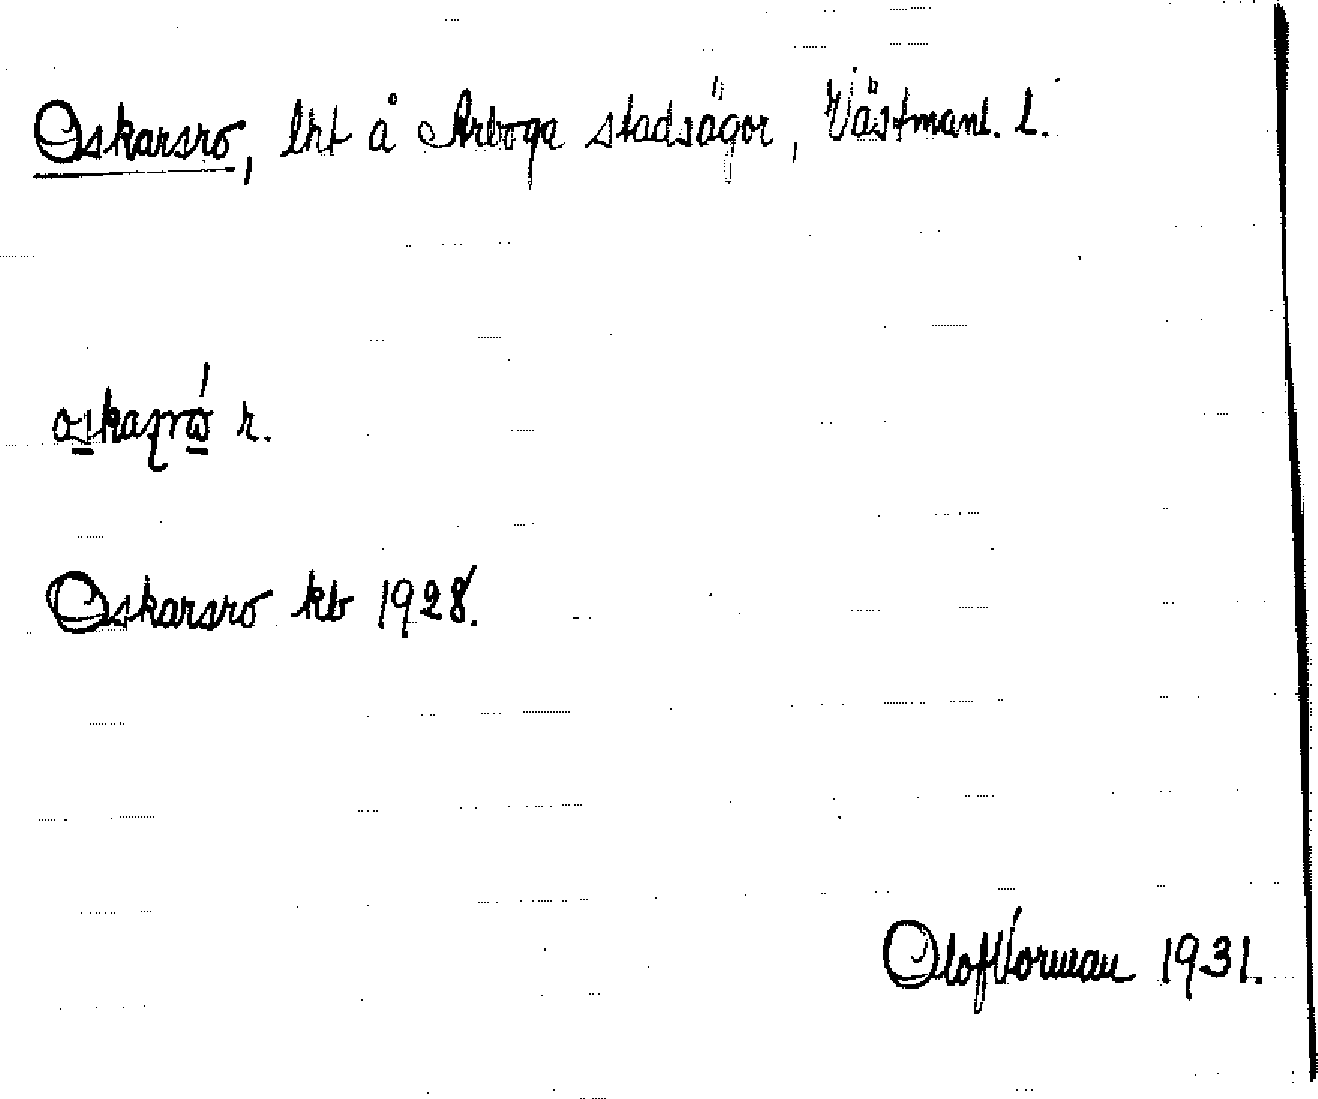 Oskarsro, lht å Arboga stadsägor, Västmanl. l.
Oskarsro kb 1928.
Olof Vorman 1931.